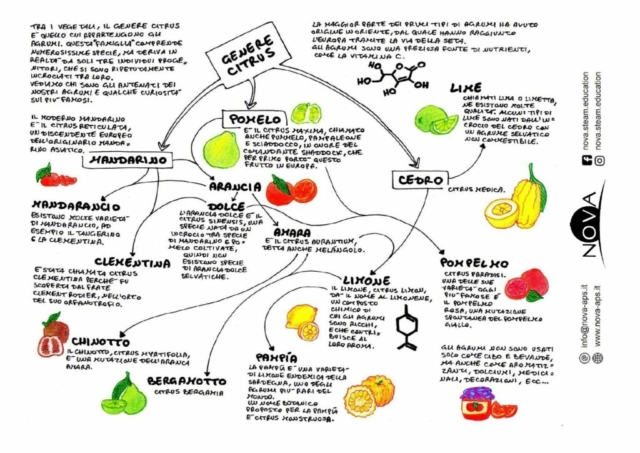 TRA I VEGETALI, IL GENERE CITRUS
È QUELLO CUI APPARTENGONO GLI
AGRUMI. QUESTA "FAMIGLIA" COMPRENDE
NUMEROSISSIME SPECIE, MA DERIVA IN
REALTÀ DA SOLI TRE INDIVIDUI PROGE,
NITORI, CHE SI SONO RIPETUTAMENTE
INCROCIATI TRA LORO.
VEDIAMO CHI SONO GLI ANTENATI DEI
NOSTRI AGRUMI E QUALCHE CURIOSITÀ
SUI PIÙ FAMOSI.
GENERE
CITRUS
LA MAGGIOR PARTE DEI PRIMI TIPI DI AGRUMI HA AVUTO
ORIGINE IN ORIENTE, DAL QUALE HANNO RAGGIUNTO
L'EUROPA TRAMITE LA VIA DELLA SETA.
GLI AGRUMI SONO UNA PREZIOSA FONTE DI NUTRIENTI,
COME LA VITAMINA C.
HO
HO
O
O
HO
OH
LIME
CHIAMATI LIMA O LIMETTA,
NE ESISTONO MOLTE
QUALITÀ. ALCUNI TIPI DI
LIME SONO NATI DALL'IN
CROCIO DEL CEDRO CON
UN AGRUME SELVATICO
NON COMMESTIBILE.
IL MODERNO MANDARINO
È IL CITRUS RETICULATA,
UN DISCENDENTE EUROPEO
DELL'ORIGINARIO MANDA
RINO ASIATICO.
MANDARINO
POMELO
È IL CITRUS MAXIMA, CHIAMATO
ANCHE PUMMELO, PAMPALEONE
E SCIADDOCCO, IN ONORE DEL
COMANDANTE SHADDOCK, CHE
PER PRIMO PORTÒ QUESTO
FRUTTO IN EUROPA.
CEDRO
CITRUS MEDICA.
MANDARANCIO
ESISTONO MOLTE VARIETÀ
DI MANDARANCIO, AD
ESEMPIO IL TANGERINO
E LA CLEMENTINA.
ARANCIA
DOLCE
L'ARANCIA DOLCE È IL
CITRUS SINENSIS, UNA
SPECIE NATA DA UN
INCROCIO TRA SPECIE
DI MANDARINO E PO-
MELO COLTIVATE,
QUINDI NON
ESISTONO SPECIE
DI ARANCIA DOLCE
SELVATICHE.
AMARA
È IL CITRUS AURANTIUM,
DETTA ANCHE MELANGOLO.
CLEMENTINA
È STATA CHIAMATA CITRUS
CLEMENTINA PERCHÉ FU
SCOPERTA DAL FRATE
CLEMENT RODIER, NELL'ORTO
DEL SUO ORFANOTROFIO.
LIMONE
IL LIMONE, CITRUS LIMON,
DÀ IL NOME AL LIMONENE,
UN COMPOSTO
CHIMICO DI
CUI GLI AGRUMI
SONO RICCHI,
E CHE CONTRI,
BUISCE AL
LORO AROMA.
POMPELMO
CITRUS PARADISI.
UNA DELLE SUE
VARIETÀ OGGI
PIÙ FAMOSE È
IL POMPELMO
ROSA, UNA MUTAZIONE
SPONTANEA DEL POMPELMO
GIALLO.
CHINOTTO
IL CHINOTTO, CITRUS MYRTIFOLIA,
È UNA MUTAZIONE DELL'ARANCIA
AMARA.
BERGAMOTTO
CITRUS BERGAMIA
PAMPÍA
LA PAMPÍA È UNA VARIETÀ
DI LIMONE ENDEMICA DELLA
SARDEGNA, UNO DEGLI
AGRUMI PIÙ RARI DEL
MONDO.
UN NOME BOTANICO
PROPOSTO PER LA PAMPÍA
È CITRUS MONSTRUOSA.
GLI AGRUMI NON SONO USATI
SOLO COME CIBO E BEVANDE,
MA ANCHE COME AROMATIZ
ZANTI, DOLCIUMI, MEDICI
NALI, DECORAZIONI, ECC...
nova.steam.education
nova.steam.education
NOVA
info@nova-aps.it
www.nova-aps.it